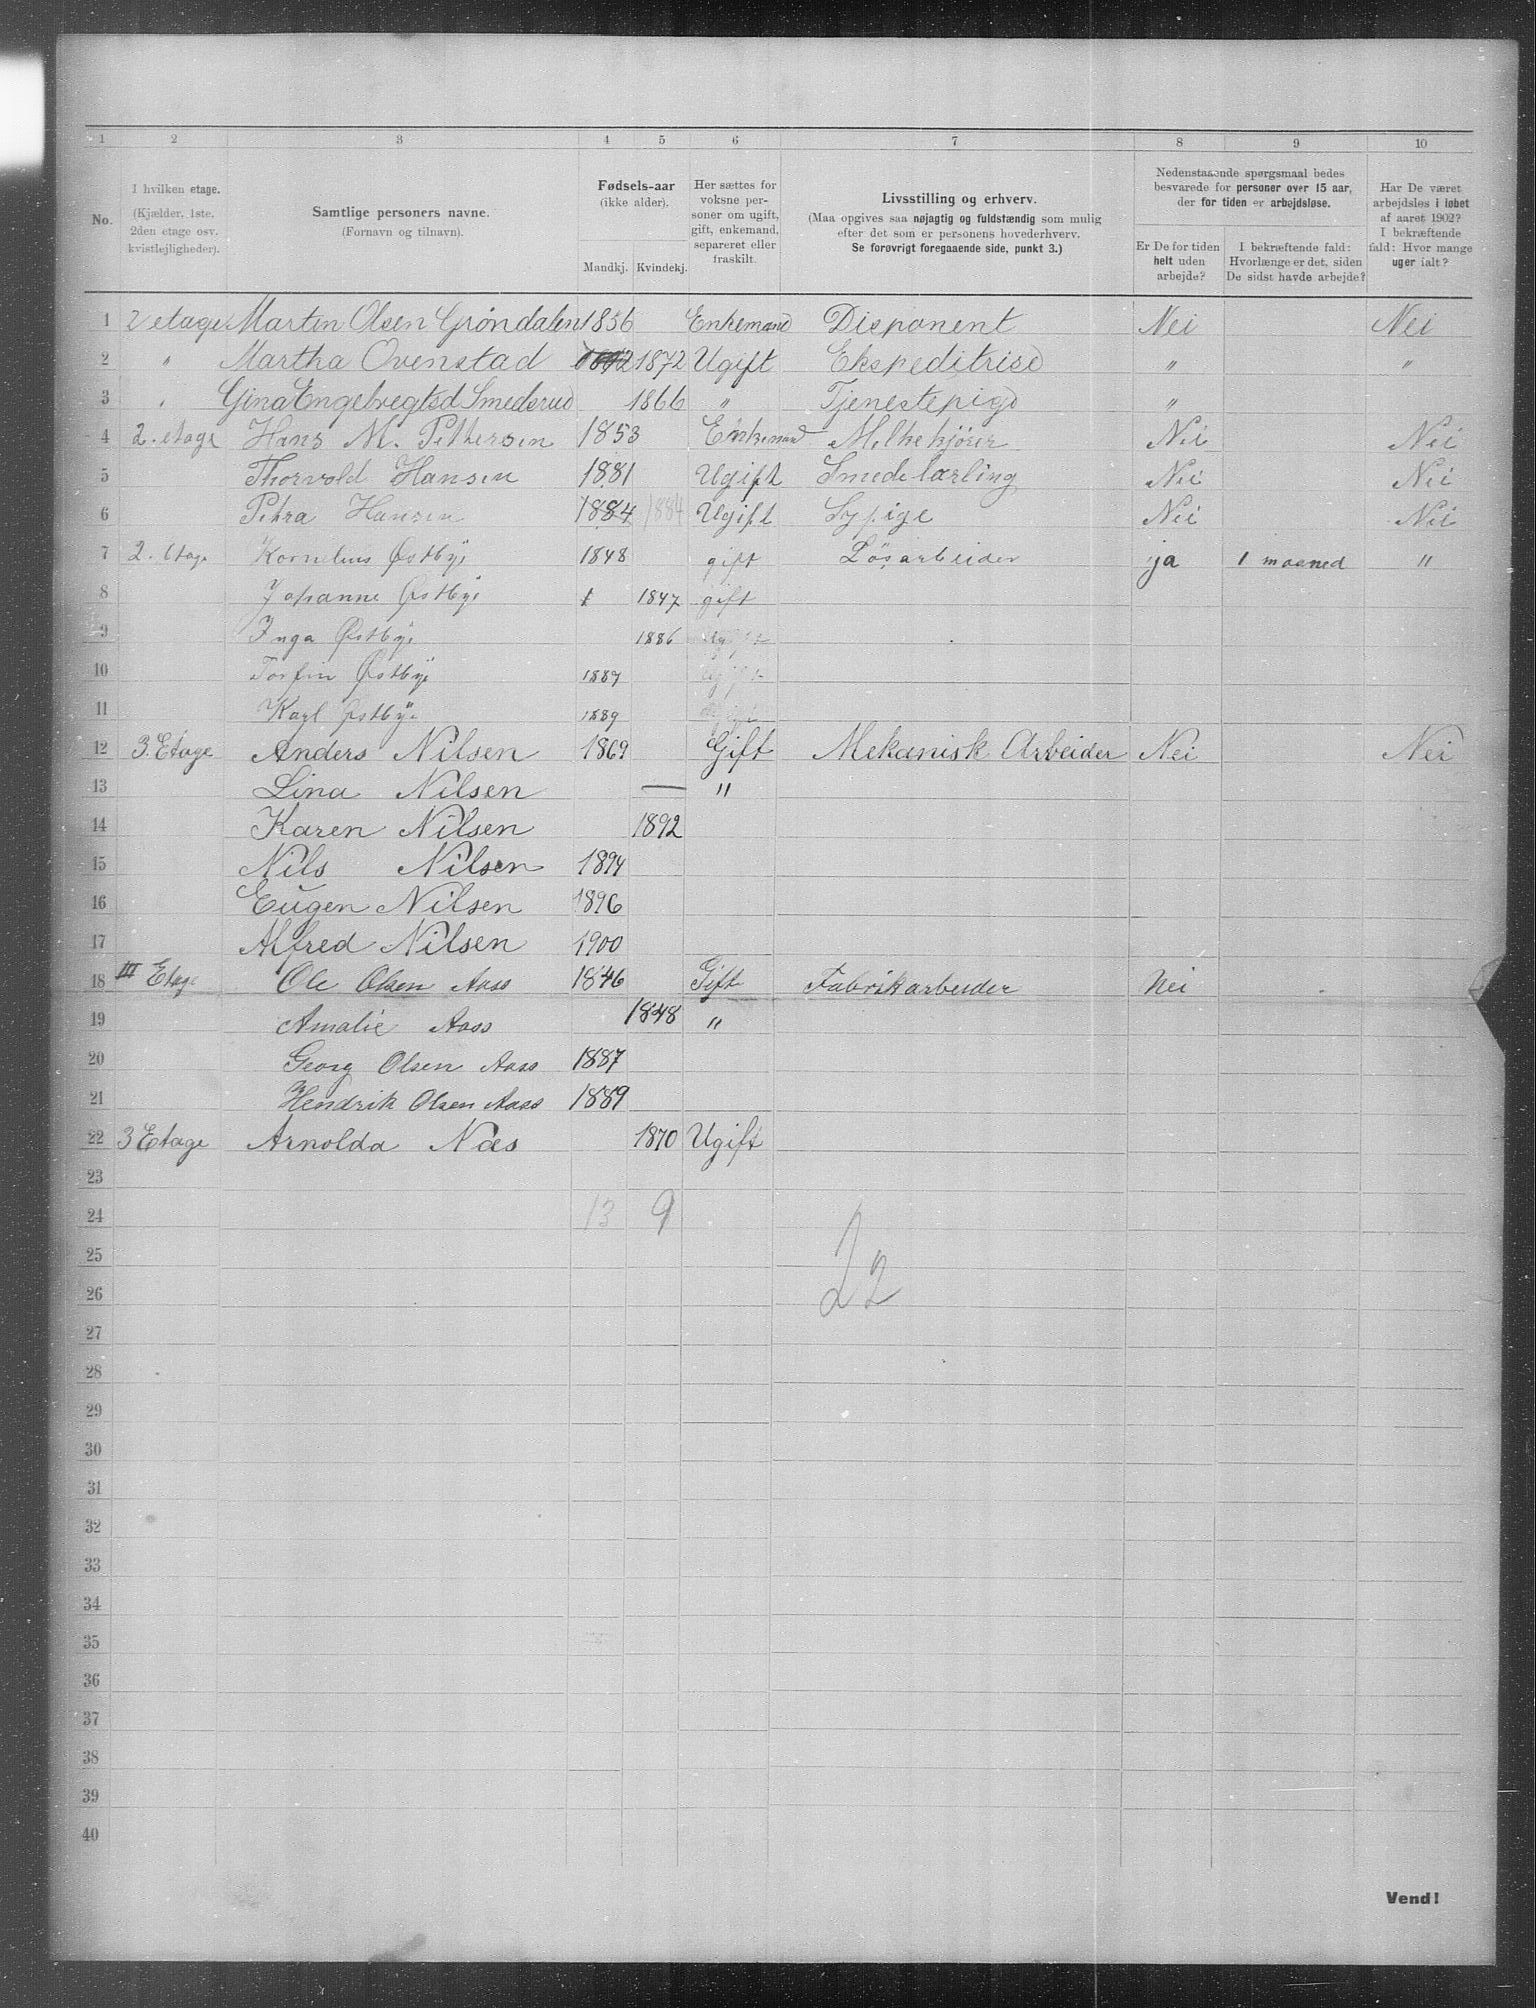 1 2 3 4 5 6 7 8 9 10
No.
I hvilken etage.
(Kjælder, 1ste.
2den etage osv.
kvistlejligheder).
Samtlige personers navne.
(Fornavn og tilnavn).
Fødsels-aar
(ikke alder).
Mandkj. Kvindekj.
Her sættes for
voksne per-
soner om ugift,
gift, enkemand,
separeret eller
fraskilt.
Livsstilling og erhverv.
(Maa opgives saa nøjagtig og fuldstændig som mulig
efter det som er personens hovederhverv.
Se forøvrigt foregaaende side, punkt 3.)
Nedenstaaende spørgsmaal bedes
besvarede for personer over 15 aar,
der for tiden er arbejdsløse.
Er De for tiden
helt uden
arbejde?
I bekræftende fald:
Hvorlænge er det, siden
De sidst havde arbejde?
Har De været
arbejdsløs i løbet
af aaret 1902?
I bekræftende
fald: Hvor mange
uger ialt?
1 2 etage Martin Olsen Grøndalen 1856 Enkemand Disponent Nei Nei
2 " Martha Ovenstad 1872 Ugift Ekspeditrise " "
3 " Gina Engebregtsd Smedsrud 1866 " Tjenestepige "
4 2. etage Hans M. Pettersen 1853 Enkemand Melkekjører Nei Nei
5 Thorvold Hansen 1881 Ugift Smedelærling Nei Nei
6 Petra Hansen 1884 1884 Ugift Sypige Nei Nei
7 2. Etage Kornelius Østbye 1848 gift Løsarbeider ja 1 maaned "
8 Johanne Østbye 1847 gift
9 Inga Østbye 1886 Ugift
10 Torfin Østbye 1887 Ugift
11 Karl Østbye 1889 Ugift
12 3. Etage Anders Nilsen 1869 Gift Mekanisk Arbeider Nei Nei
13 Lina Nilsen — "
14 Karen Nilsen 1892
15 Nils Nilsen 1894
16 Eugen Nilsen 1896
17 Alfred Nilsen 1900
18 III Etage Ole Olsen Aass 1846 Gift Fabrikarbeider Nei
19 Amalie Aass 1848 "
20 Georg Olsen Aass 1887
21 Hendrik Olsen Aass 1889
22 3 Etage Arnolda Næs 1870 Ugift
23
24 13 9
25
26 22
27
28
29
30
31
32
33
34
35
36
37
38
39
40
Vend!